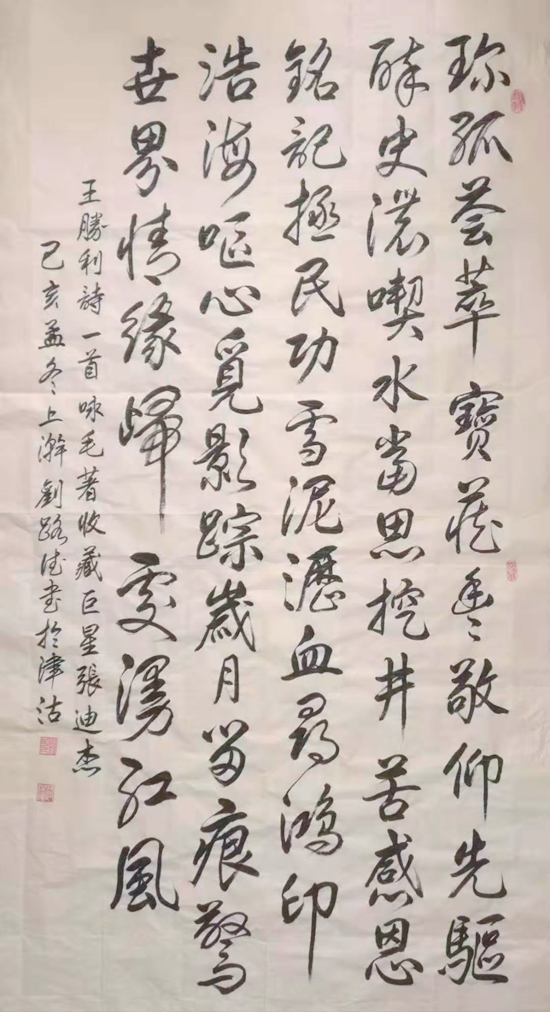 珍孤荟萃寶藏敬仰先驅
醉史濃喫水當思挖井苦感恩
銘記拯民功雪泥瀝血尋鴻印
浩海嘔心覓影踪歲月留痕驚
世界情緣歸處漫紅風
王勝利詩一首咏毛著收藏巨星張迪杰
己亥孟冬上澣劉路書於津沽